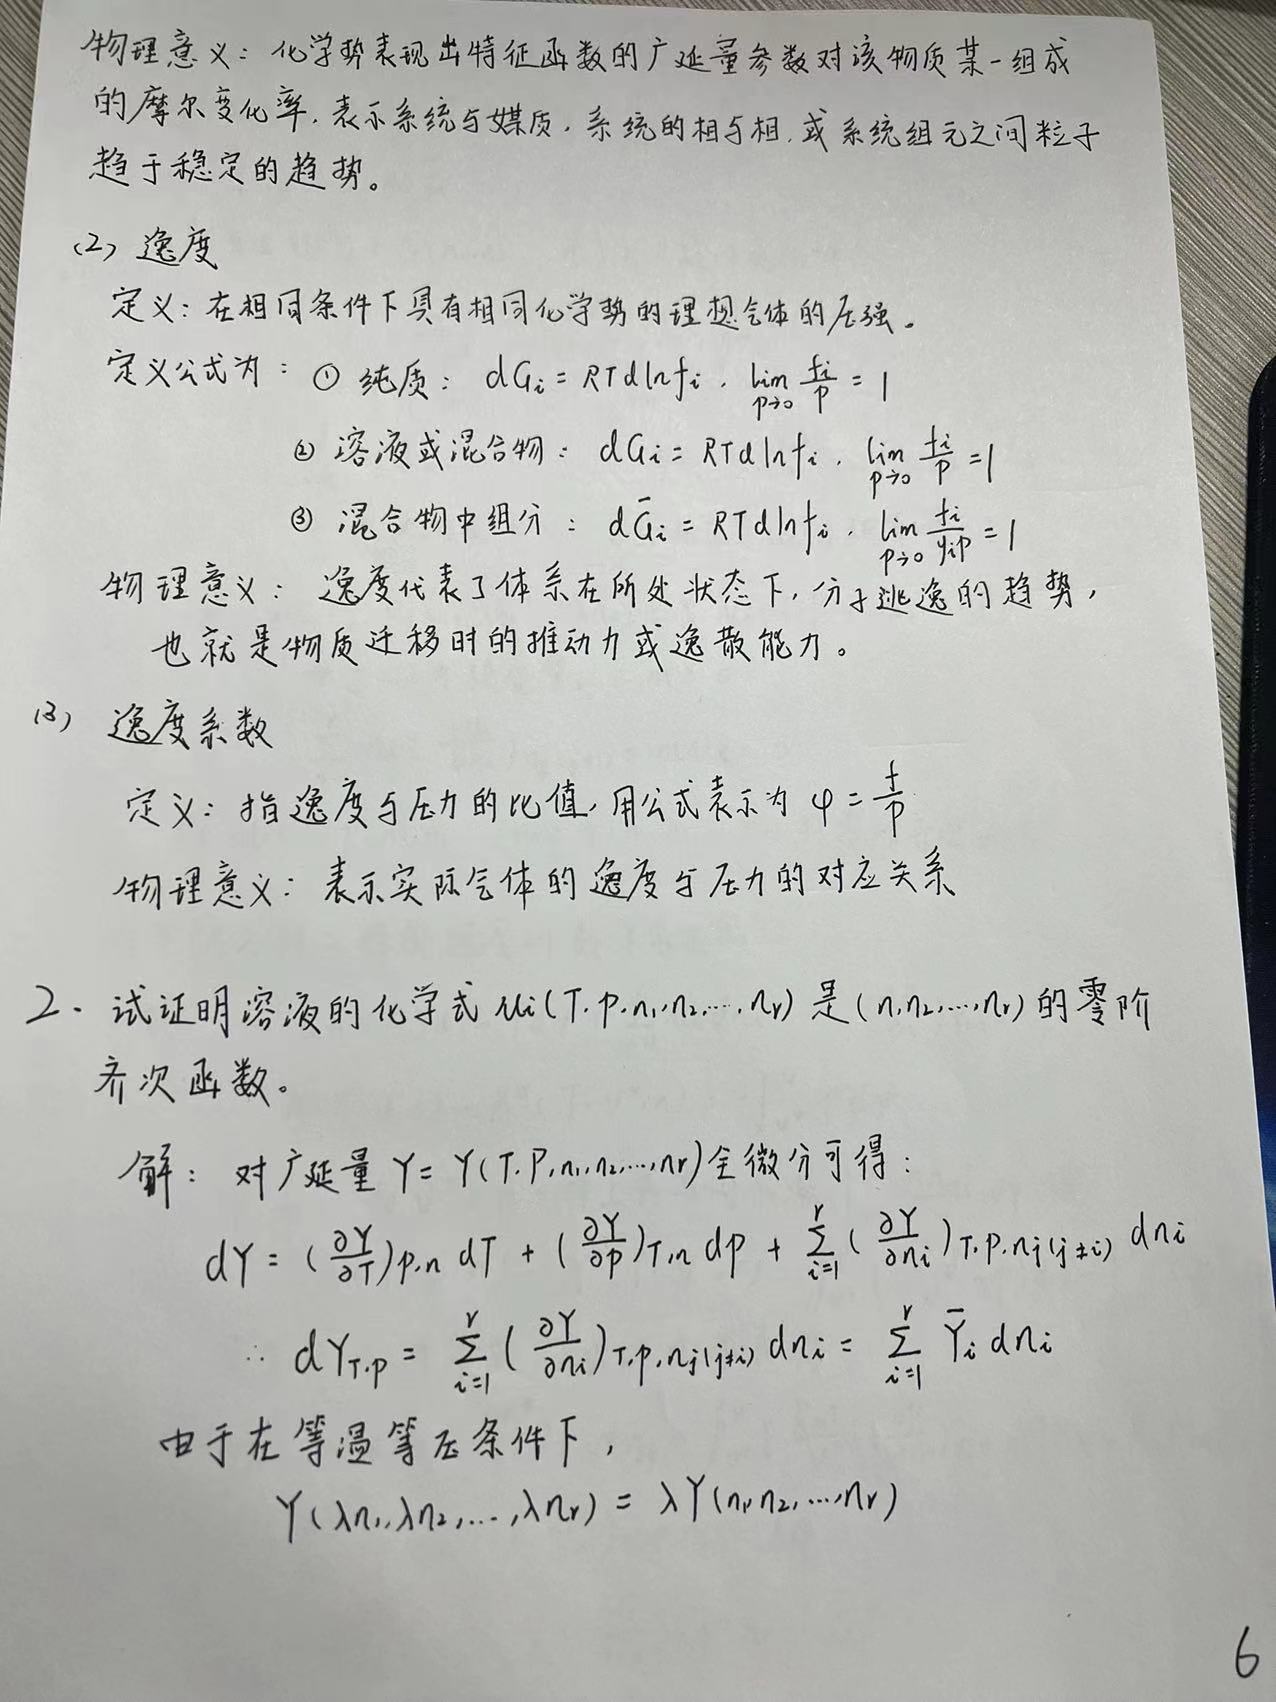 物理意义：化学势表现出特征函数的广延量参数对该物质某一组成
的摩尔变化率，表示系统与媒质，系统的相与相，或系统组元之间粒子
趋于稳定的趋势。
(2) 逸度
定义：在相同条件下具有相同化学势的理想气体的压强。
定义公式为：① 纯质：dGi = RTdlnfi，lim p→0 fi/p = 1
② 溶液或混合物：dGi = RTdlnfi，lim p→0 fi/p = 1
③ 混合物中组分：dḠi = RTdlnfi，lim p→0 fi/yip = 1
物理意义：逸度代表了体系在所处状态下，分子逃逸的趋势，
也就是物质迁移时的推动力或逸散能力。
(3) 逸度系数
定义：指逸度与压力的比值，用公式表示为 φ = f/p
物理意义：表示实际气体的逸度与压力的对应关系
2. 试证明溶液的化学式 μi(T.p.n1,n2,…,nr) 是(n1,n2,…,nr)的零阶
齐次函数。
解：对广延量 Y = Y(T.P,n1,n2,…,nr)全微分可得：
dY = (∂Y/∂T)p,n dT + (∂Y/∂p)T,n dp + Σ_{i=1}^{r} (∂Y/∂ni)T.p.nj(j≠i) dni
∴ dYT.p = Σ_{i=1}^{r} (∂Y/∂ni)T.p.nj(j≠i) dni = Σ_{i=1}^{r} Ȳi dni
由于在等温等压条件下，
Y(λn1,λn2,…,λnr) = λY(n1,n2,…,nr)
6